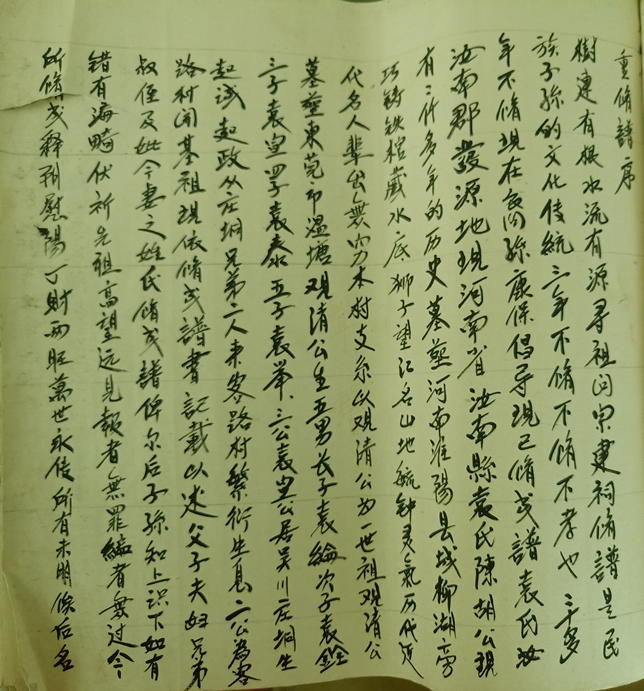 重脩譜序
樹連有根水流有源尋祖问宗建祠脩譜是民
族子孫的文化传統三年不脩不脩不孝也三十多
年不脩現在裔孫康保倡导現已脩成譜袁氏汝
汝南郡發源地現河南省汝南縣袁氏陳胡公現
有二仟多年的历史墓塟河南淮陽县城柳湖旁
巧铸铁棺藏水底獅子望江名山地毓钟灵氣历代
代名人輩出無力木树支系以观清公为一世祖观清公
墓塟東莞市温塘观清公生五男长子袁綸次子袁銓
三子袁皇四子袁泰五子袁举三公袁皇公居吴川庄垌生
起诚起政从庄垌兄弟二人来客路村繁衍生息二公為客
路村闭基祖現依脩成譜書記載以述父子夫妇兄弟
叔侄及妣今妻之姓氏脩成譜俾尔后子孫知上识下如有
錯有漏畸伏祈先祖高望远見報者無罪编者無过今
所脩成釋刑慰陽丁財两旺萬世永传所有未明候后名